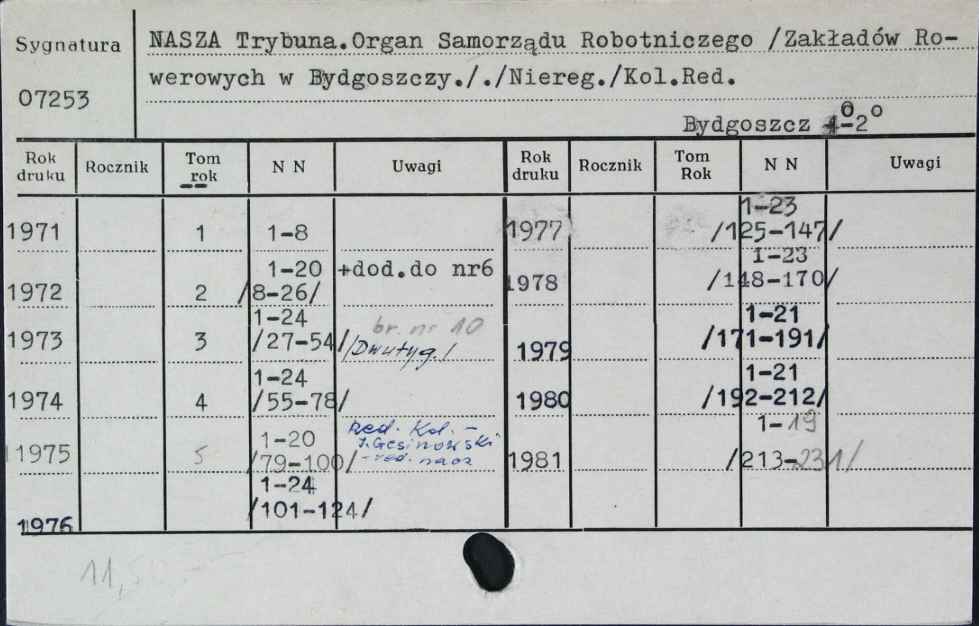 Sygnatura
07253
NASZA Trybuna.Organ Samorządu Robotniczego /Zakładów Ro-
werowych w Bydgoszczy././Niereg./Kol.Red.
Bydgoszcz 4°-2°
Rok druku Rocznik Tom rok N N Uwagi Rok druku Rocznik Tom Rok N N Uwagi
1971 1 1-8
1972 2 1-20 /8-26/ +dod.do nr6
1973 3 1-24 /27-54/ br. nr 10 /Dwutyg./
1974 4 1-24 /55-78/
1975 5 1-20 /79-100/ Red. Kol. - J. Gęsinowski - red. nacz
1976 1-24 /101-124/
1977 1-23 /125-147/
1978 1-23 /148-170/
1979 1-21 /171-191/
1980 1-21 /192-212/
1981 1-19 /213-231/